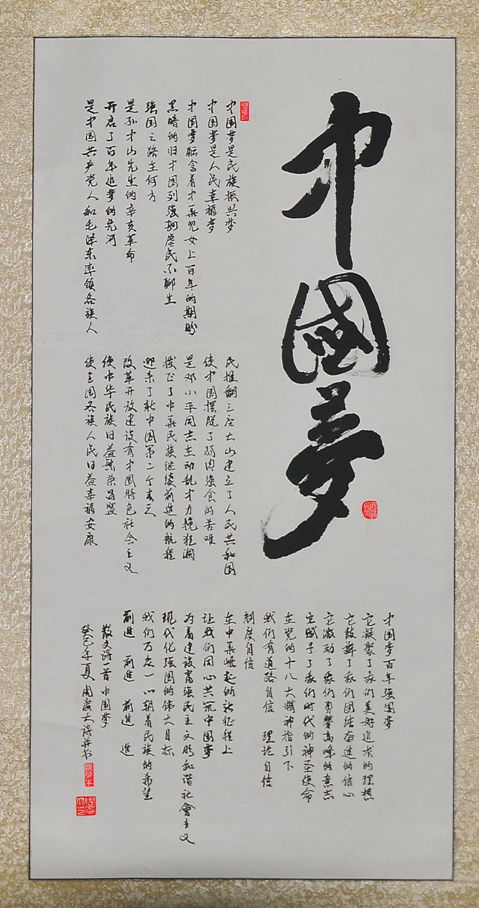 中國夢
中国梦是民族振兴梦
中国梦是人民幸福梦
中国梦融含着中华儿女上百年的期盼
黑暗的旧中国列强掳虐民不聊生
强国之路在何方
是孙中山先生的辛亥革命
开启了百年追梦的先河
是中国共产党人和毛泽东率领各族人
民推翻三座大山建立了人民共和国
使中国摆脱了弱肉强食的苦难
是邓小平同志在动乱中力挽狂澜
拨正了中华民族继续前進的航程
迎来了新中国第二个春天
改革开放建设有中国特色社会主义
使中华民族日益繁荣昌盛
使全国各族人民日益幸福安康
中国梦百年强国梦
它凝聚了我们美好追求的理想
它鼓舞了我们团结奋進的信心
它激励了我们勇攀高峰的意志
它赋予了我们时代的神圣使命
在党的十八大精神指引下
我们有道路自信 理论自信
制度自信
在中华崛起的新征程上
让我们同心共筑中国梦
为着建设富强民主文明和谐社會主义
现代化强国的伟大目标
我们万众一心朝着民族的希望
前進 前進 前進 進
散文诗一首中国梦
癸巳年夏周广大诗并书